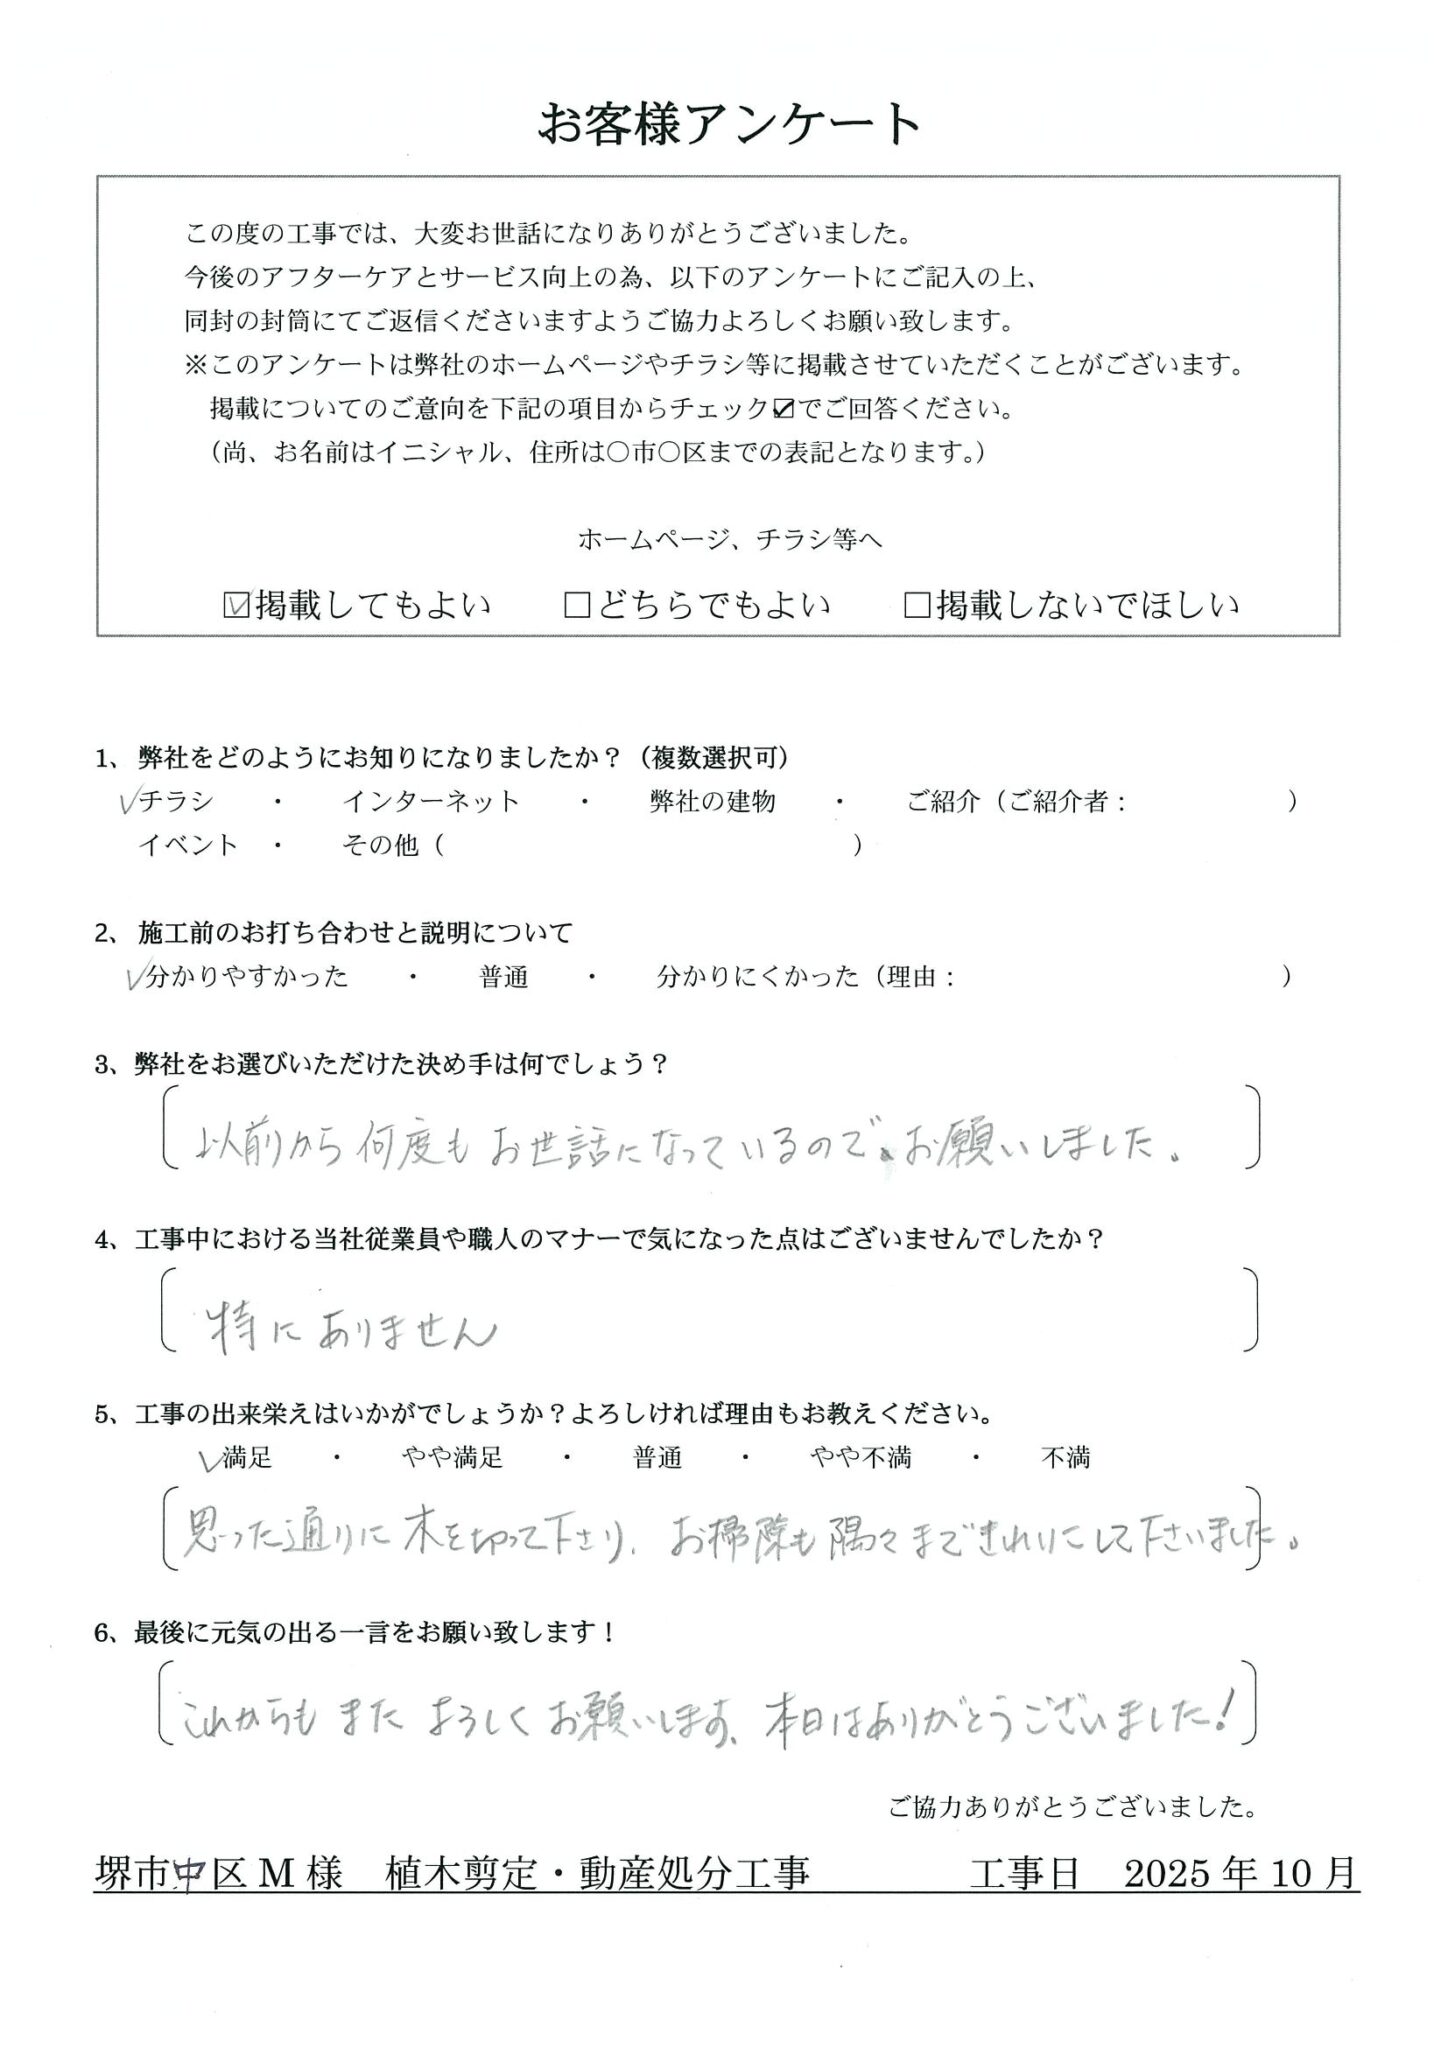 お客様アンケート
この度の工事では、大変お世話になりありがとうございました。
今後のアフターケアとサービス向上の為、以下のアンケートにご記入の上、
同封の封筒にてご返信くださいますようご協力よろしくお願い致します。
※このアンケートは弊社のホームページやチラシ等に掲載させていただくことがございます。
掲載についてのご意向を下記の項目からチェック☑でご回答ください。
（尚、お名前はイニシャル、住所は〇市〇区までの表記となります。）
ホームページ、チラシ等へ
☑掲載してもよい □どちらでもよい □掲載しないでほしい
1、弊社をどのようにお知りになりましたか？（複数選択可）
✓チラシ ・ インターネット ・ 弊社の建物 ・ ご紹介（ご紹介者： ）
イベント ・ その他（ ）
2、施工前のお打ち合わせと説明について
✓分かりやすかった ・ 普通 ・ 分かりにくかった（理由： ）
3、弊社をお選びいただけた決め手は何でしょう？
以前から何度もお世話になっているので、お願いしました。
4、工事中における当社従業員や職人のマナーで気になった点はございませんでしたか？
特にありません
5、工事の出来栄えはいかがでしょうか？よろしければ理由もお教えください。
✓満足 ・ やや満足 ・ 普通 ・ やや不満 ・ 不満
思った通りに木を切って下さり、お掃除も隅々まできれいにして下さいました。
6、最後に元気の出る一言をお願い致します！
これからもまたよろしくお願いします、本日はありがとうございました！
ご協力ありがとうございました。
堺市中区M様 植木剪定・動産処分工事 工事日 2025年10月